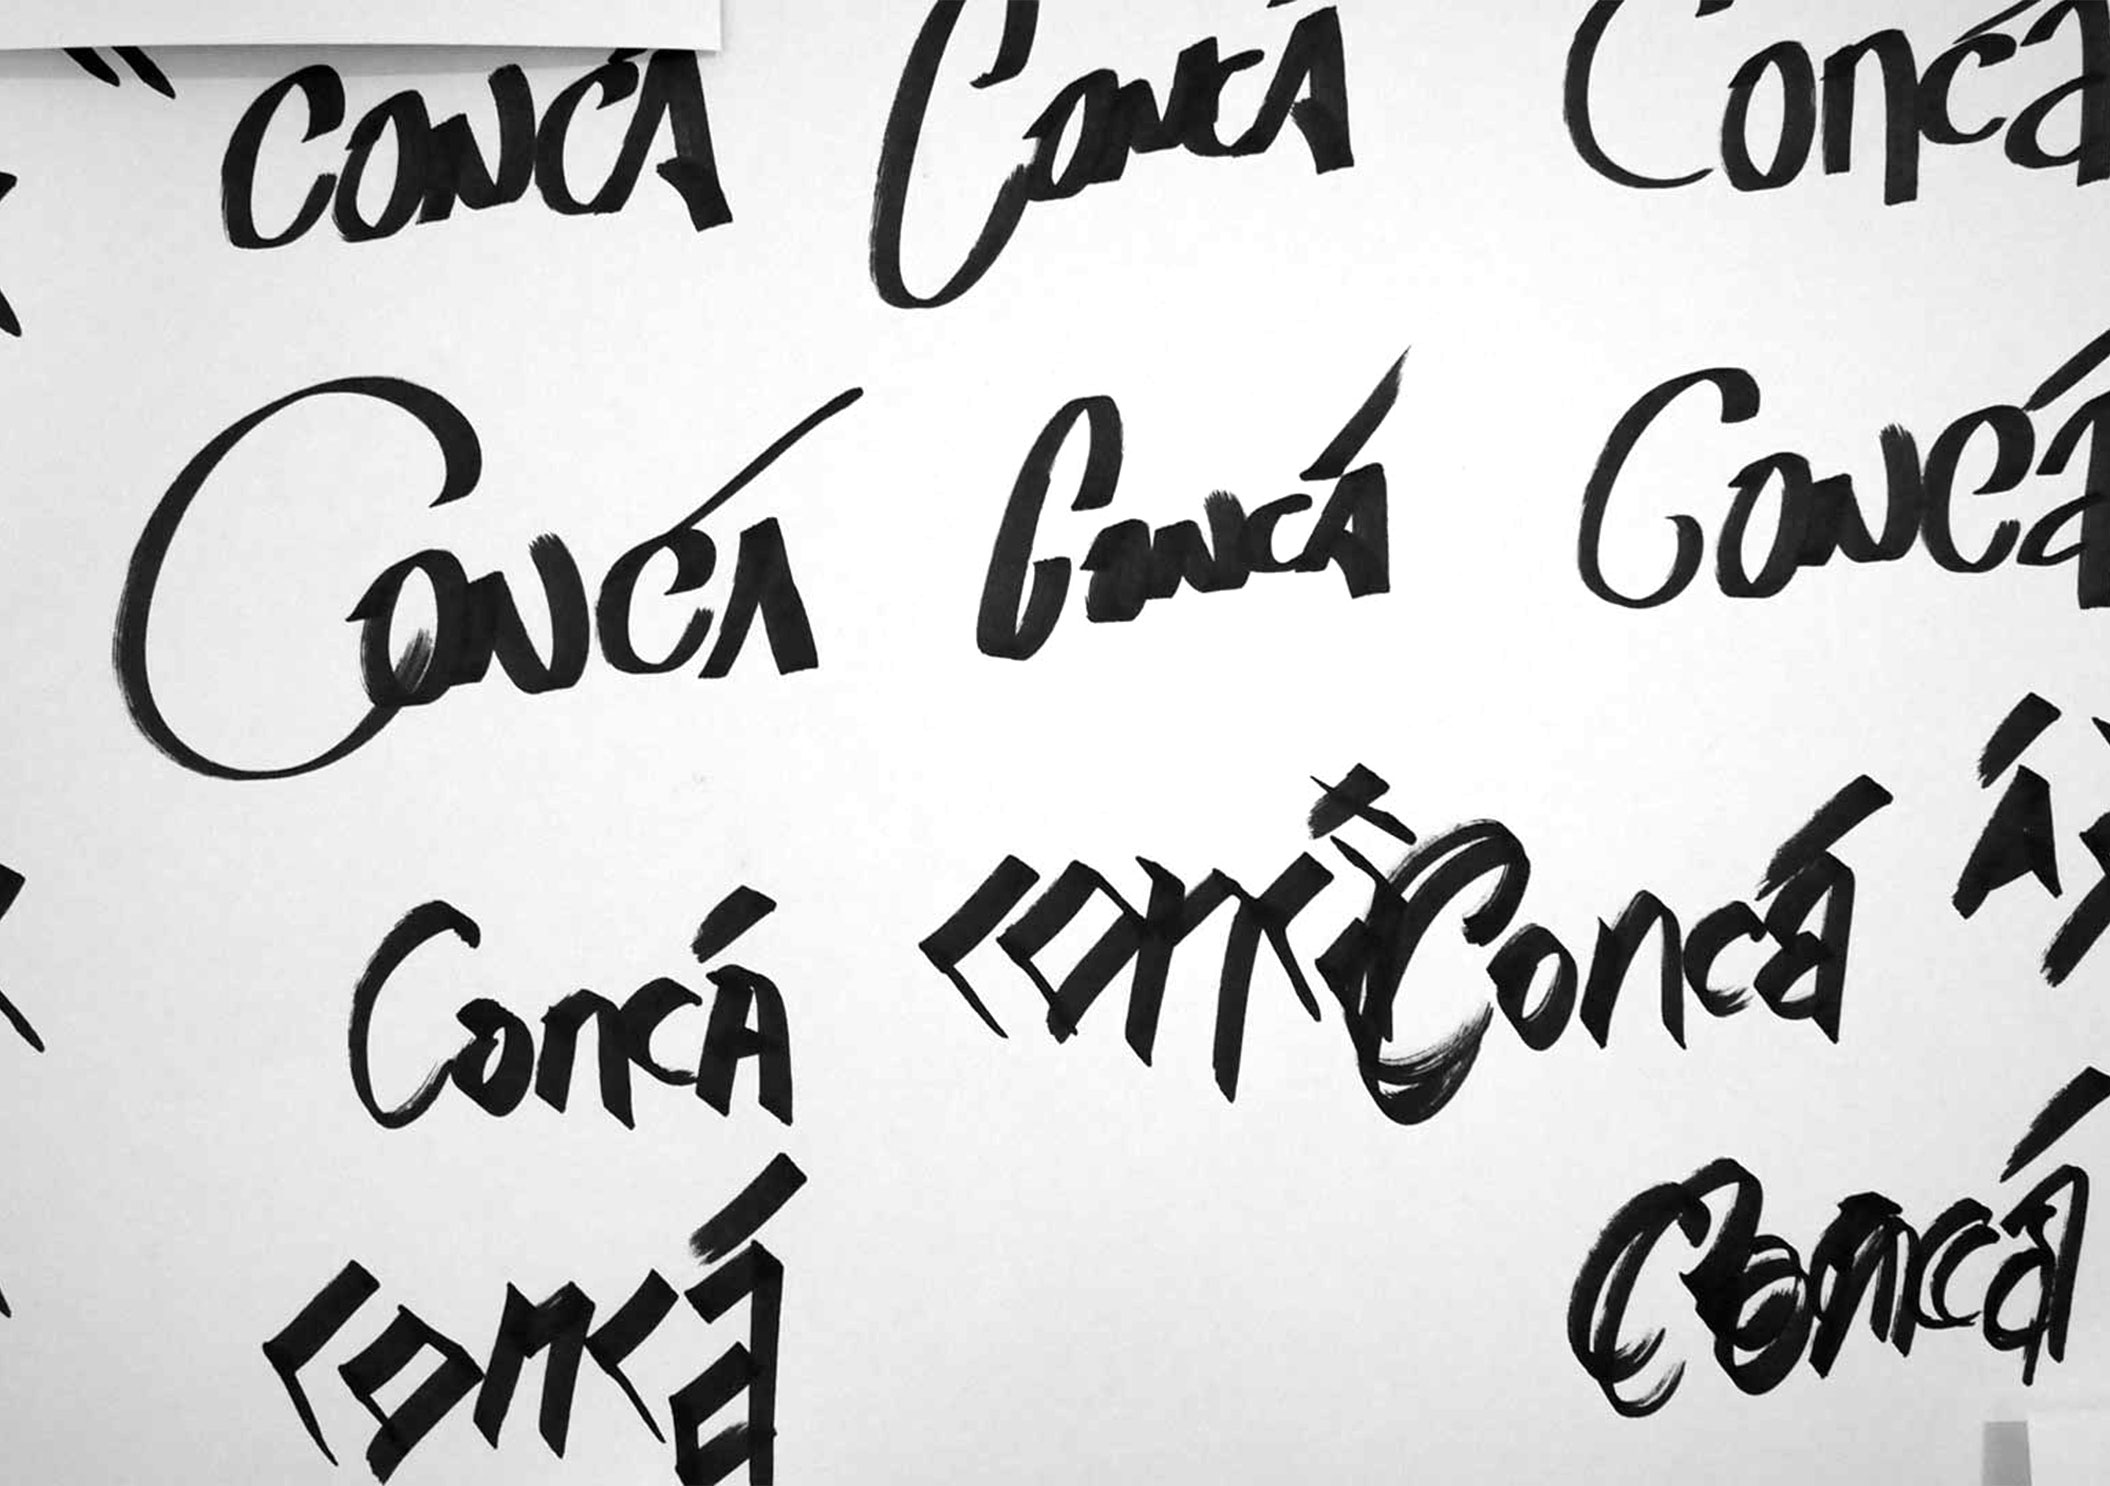 CONCÁ Concá Concá
Concá Concá Concá
concá Concá Á
Concá
Concá
concá